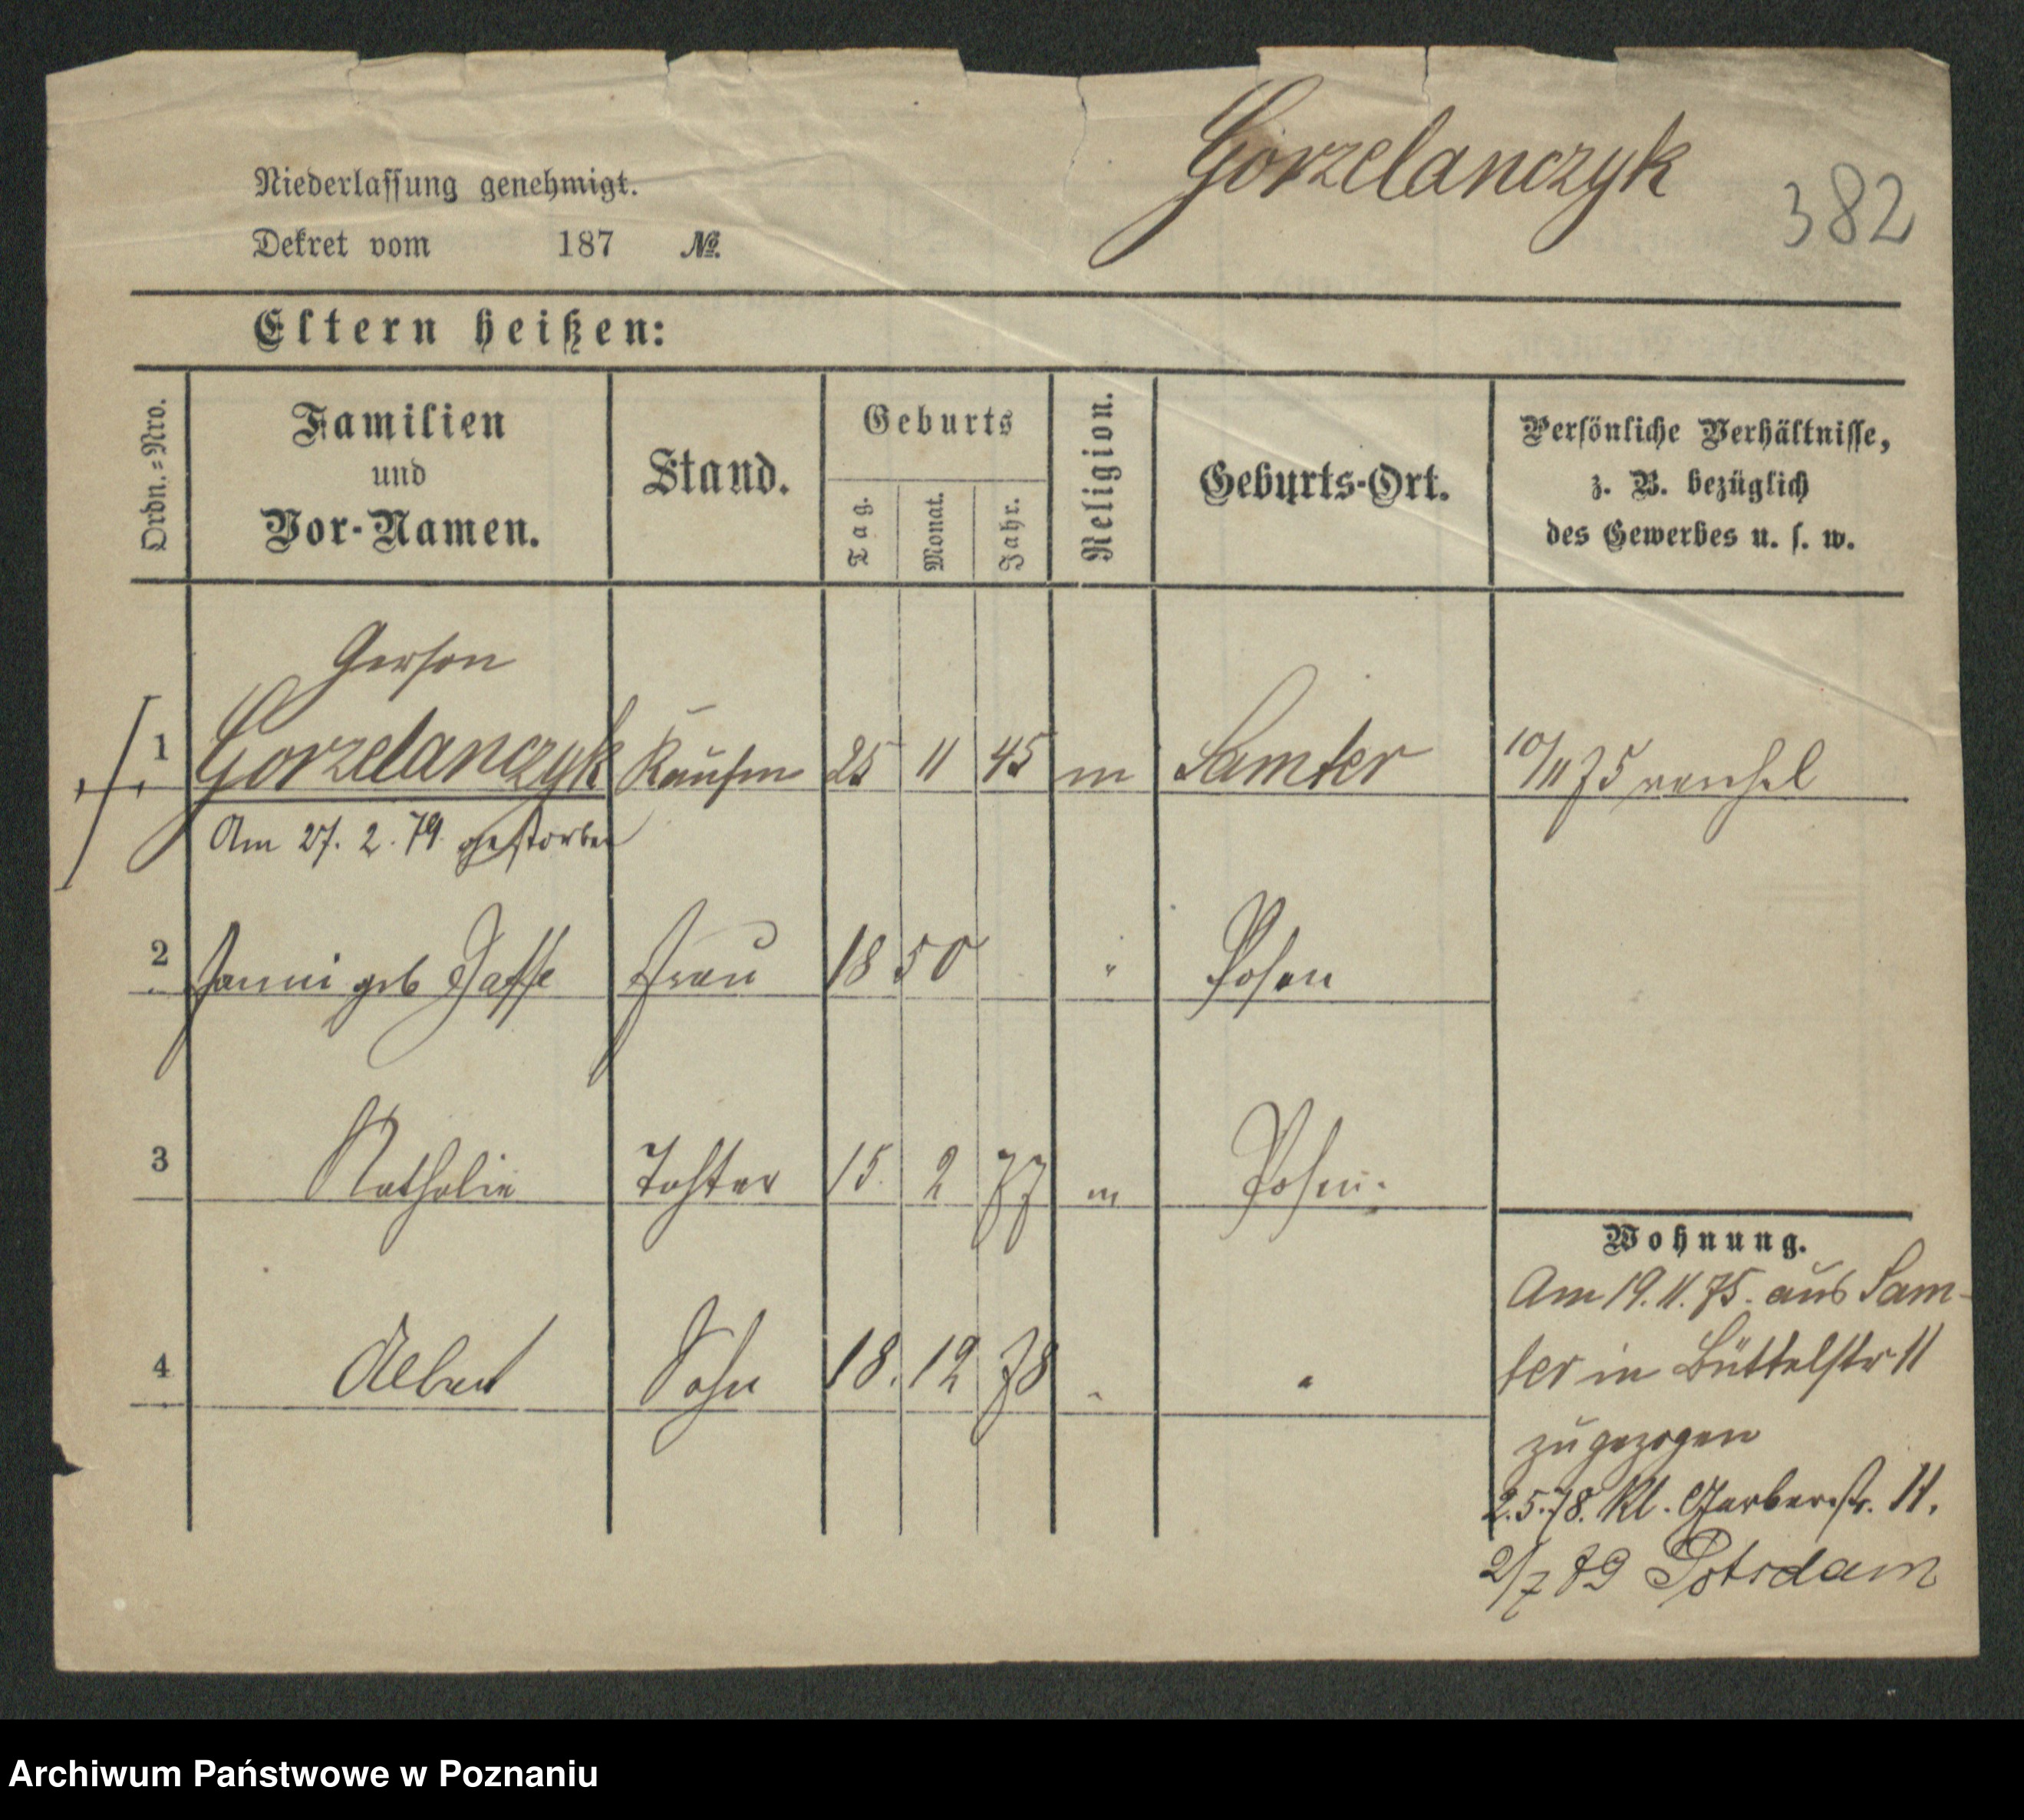 Gorzelanczyk
382
Niederlassung genehmigt.
Dekret vom 187 №.
Eltern heißen:
Ordn.=Nro.
Familien und Vor-Namen.
Stand.
Geburts
Tag. Monat. Jahr.
Religion.
Geburts-Ort.
Persönliche Verhältnisse,
z. B. bezüglich
des Gewerbes u. s. w.
Gerson
1 Gorzelanczyk Kaufm 25 11 45 m Samter 10/11 75
Am 27. 2. 79 gestorben
2 Fanni geb Jaffe Frau 1850 " Posen
3 Nathalie Tochter 15. 2 77 m Posen.
4 Albert Sohn 18. 12 78 " "
Wohnung.
Am 19. 11. 75. aus Sam-
ter in Büttelstr 11
zugezogen
2.5.78. Kl. Gerberstr. 11.
2/7 89 Potsdam
Archiwum Państwowe w Poznaniu